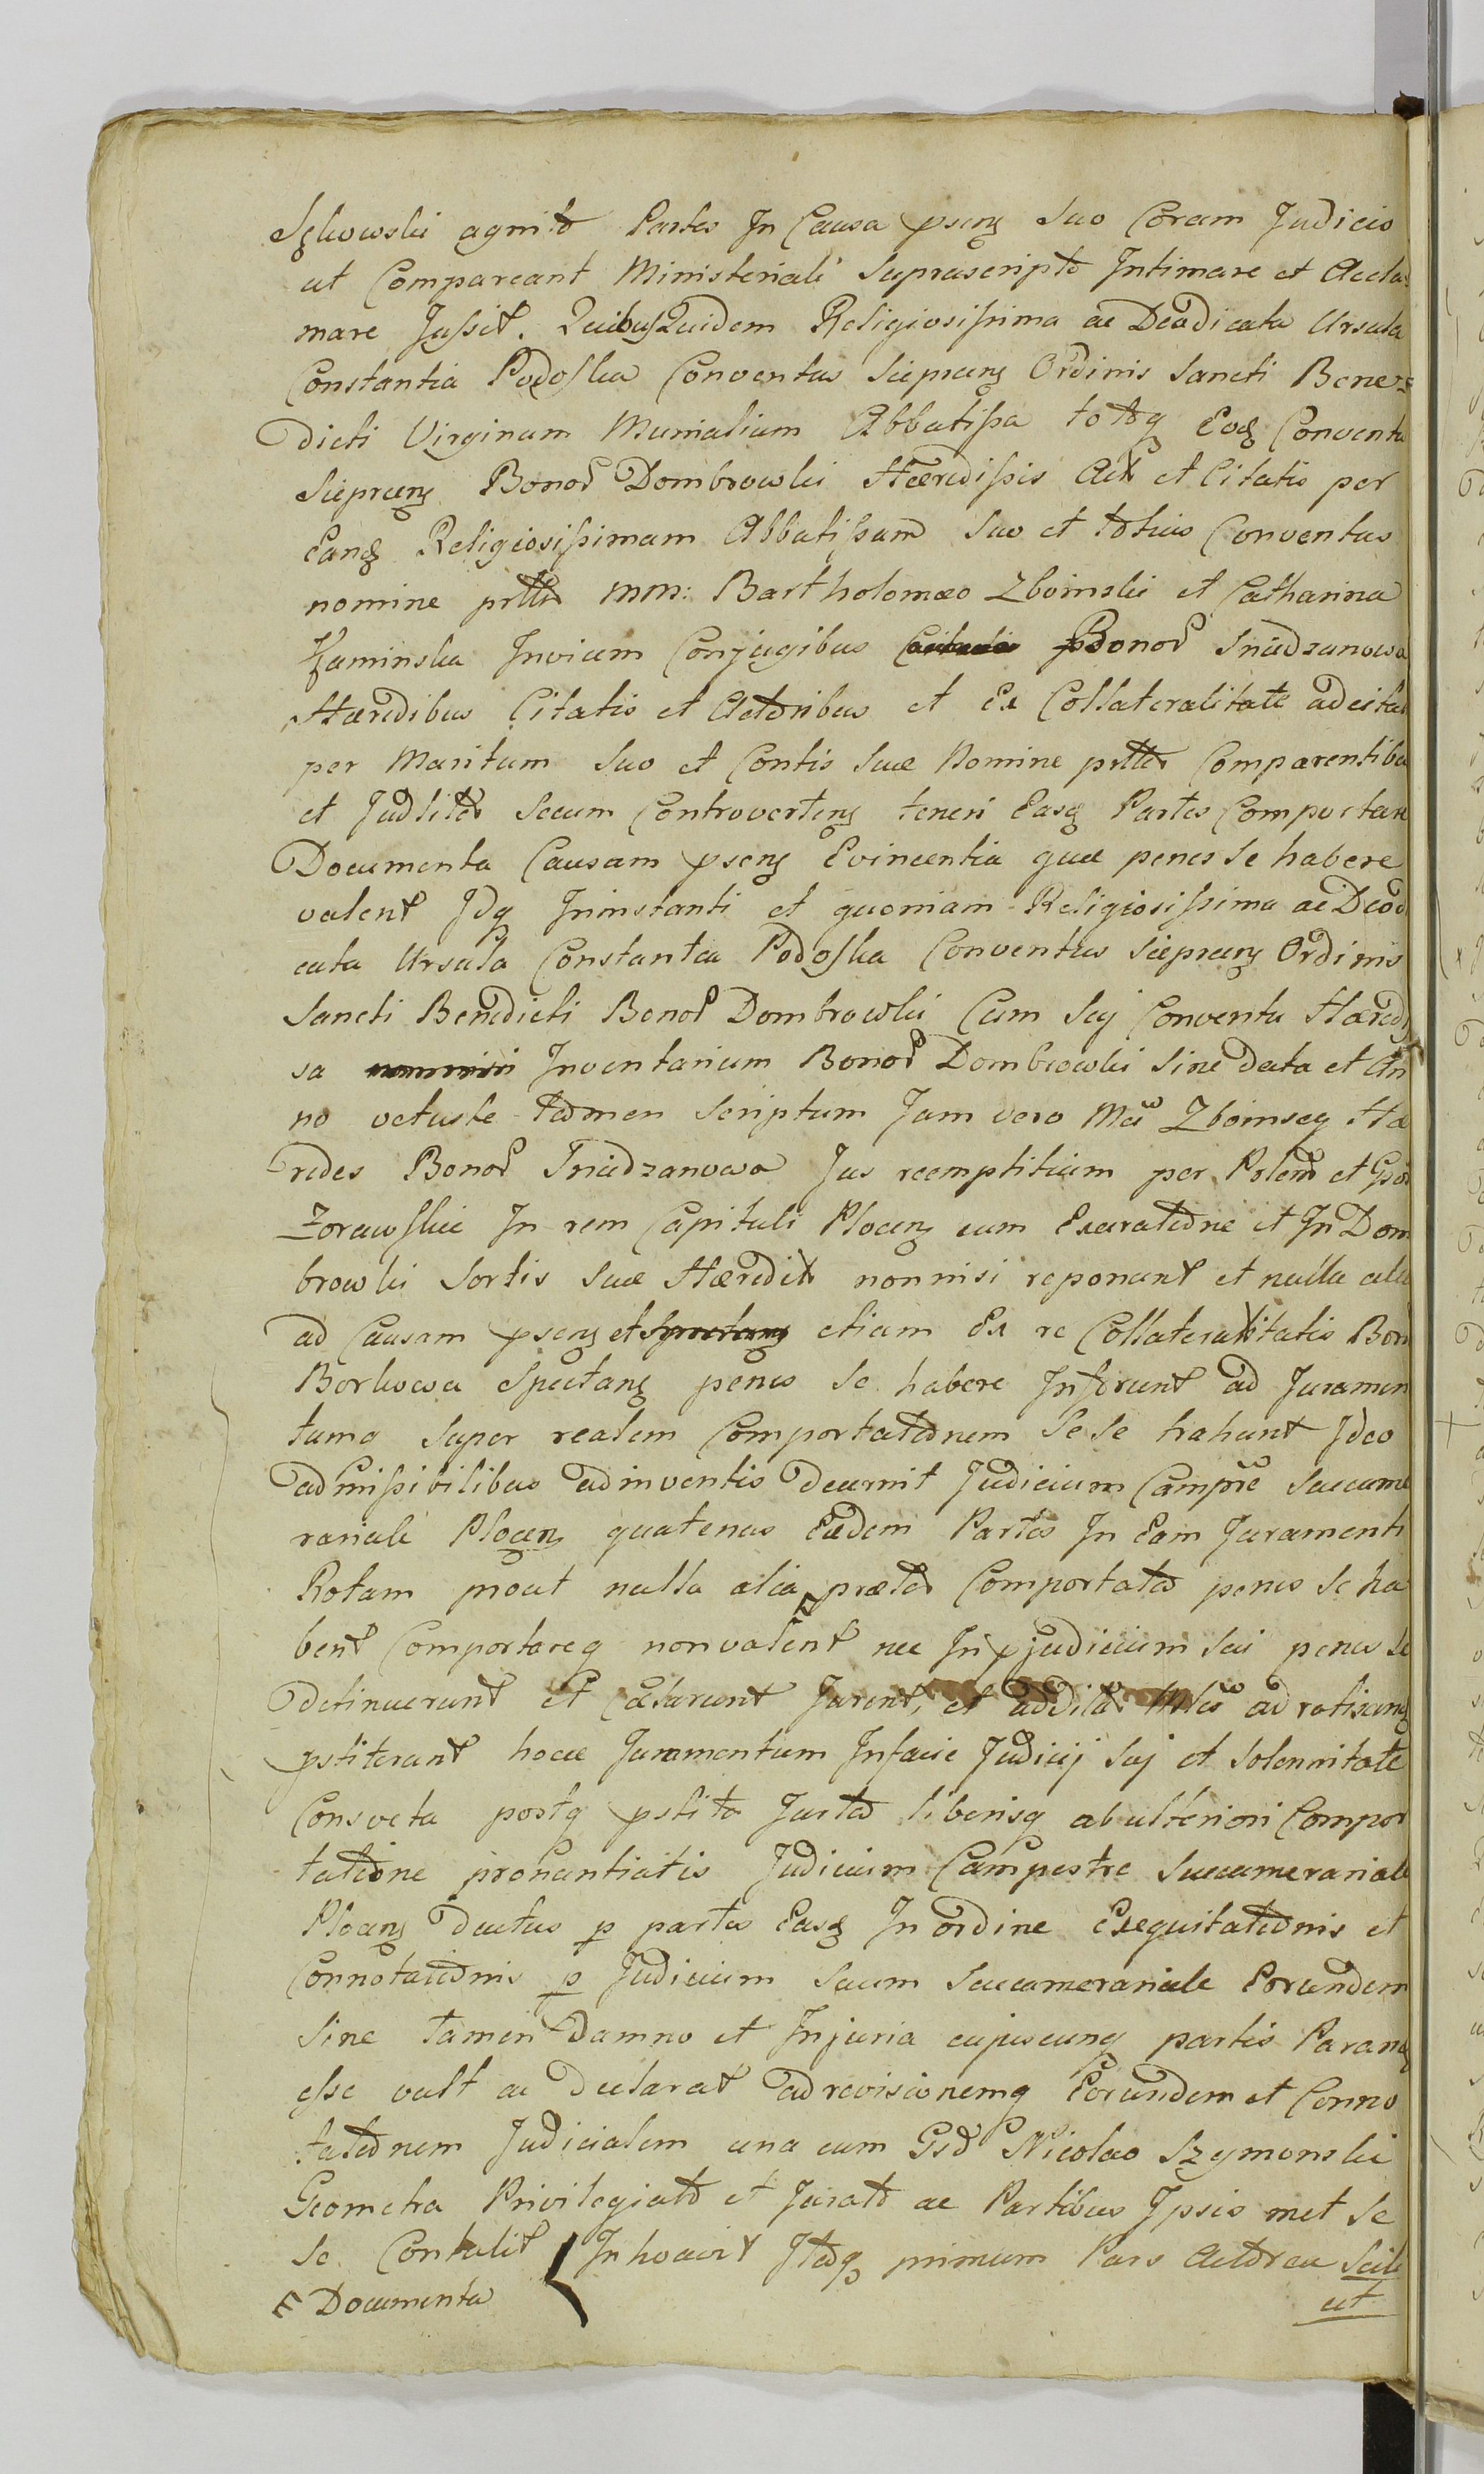 agnito Partes In Causa pseng Suo Coram Judicio
ut Compareant Ministeriali Suprascripto Intimare et Accla:
mare Jussit. Quibus Quidem Religiosissima ac Deodicata Ursula
Constantia Podoska Conventus Sieprceng Ordinis Sancti Bene=
dicti Virginum Munialium Abbatissa totoq Eodq Conventu
Sieprceng Bonor Dombrowski Hæredissis Act et Citatis per
Eandq Religiosissimam Abbatissam Suo et totius Conventus
nomine prtte MM: Bartholomæo Zboinski et Catharina
Kaminska Invicem Conjugibus Bonor Sniedzanowo
Hæredibus Citatis et Actoribus et Ex Collateralitate adcitat
per Maritum Suo et Contis Suæ Nomine prttte Comparentibu
et Judliter Secum Controverteng teneri Easdq Partes Comportare
Documenta Causam pseng Evincentia quæ penes Se habere
valent Idq Ininstanti et quoniam Religiosissima ac Deod
cata Ursula Constantia Podoska Conventus Sieprceng Ordinis
Sancti Benedicti Bonor Dombrowski Cum Suj Conventu Hæredis
sa Inventarium Bonor Dombrowski Sine data et An
no vetuste tamen Scriptum Jam vero Zboinscy Hæ
redes Bonor Sniedzanowo Jus reemptitium per et
Zorawskie In rem Capituli Ploceng cum Exaratione et In Dom
browski Sortis Suæ Hæredit nonnisi reponunt et nulla alia
ad Causam pseng et etiam Ex re Collateralitatis Bon
Borkowo Spectang penes Se habere Inferunt ad Juramen
tumq Super realem Comportationem Se Se trahunt Ideo
admissibilibus adinventis decernit Judicium Campre Succame
rariale Ploceng quatenus Eædem Partes In Eam Juramenti
Rotam prout nulla alia præter Comportata penes Se ha
bent Comportareq non valent nec In pjudicium Sui penes Se
detinuerunt et Celarunt Jurent, et addita
pstiterunt hocce Juramentum Infacie Judicij Suj et Solennitate
Consveta postq pstito Jurto liberisq ab ulteriori Compor
tatione pronuntiatis Judicium Campestre Succamerariale
Ploceng ductus p partes Easdq In ordine Exequitationis et
Connotationis p Judicium Suum Succamerariale Eorundem
Sine tamen Damno et Injuria cujuscunq partis Parang
esse vult ac declarat ad revisionemq Eorundem et Conno
tationem Judicialem una cum Gsd Nicolao Szymonski
Geometra Privilegiato et Jurato ac Partibus Ipsis met Se
Se Contulit In hocvirt Itaq primum Pars Actorea Scili
Documenta
cet